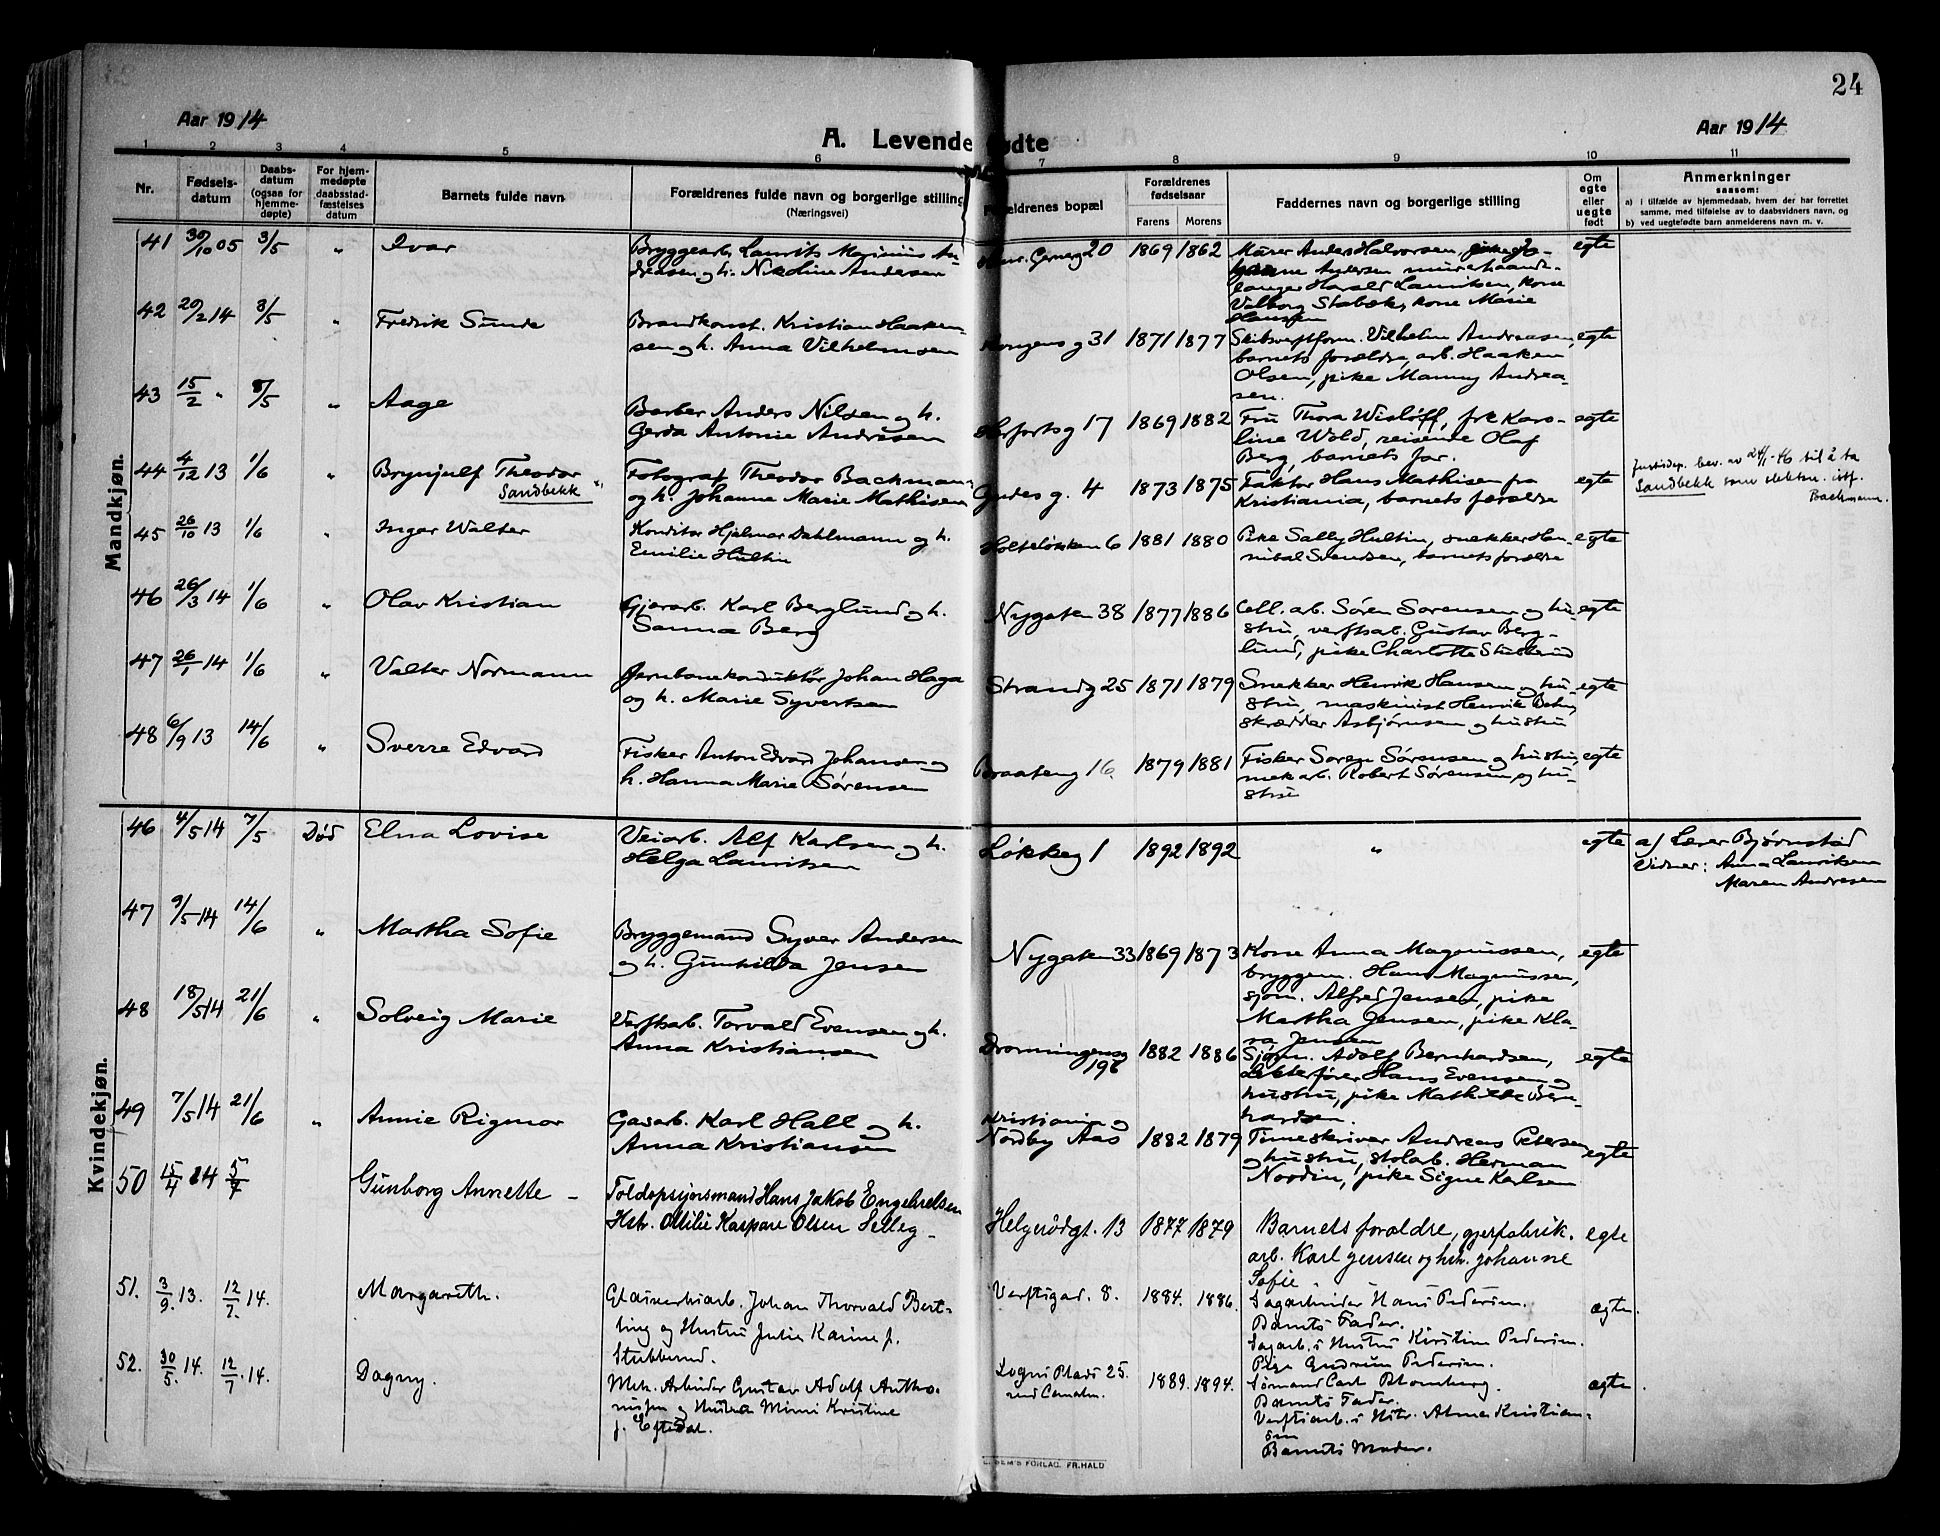 24
Aar 1914
A. Levende fødte
Aar 1914
1 2 3 4 5 6 7 8 9 10 11
Nr.
Fødsels-
datum
Daabs-
datum
(ogsaa for
hjemme-
døpte)
For hjem-
medøpte
daabsstad-
fæstelses
datum
Barnets fulde navn
Forældrenes fulde navn og borgerlige stilling
(Næringsvei)
Forældrenes bopæl
Forældrenes
fødselsaar
Farens Morens
Faddernes navn og borgerlige stilling
Om
egte
eller
uegte
født
Anmerkninger
saasom:
a) i tilfælde av hjemmedaab, hvem der har forrettet
samme, med tilføielse av to daabsvidners navn, og
b) ved uegtefødte barn anmelderens navn m. v.
Mandkjøn.
41 30/10 05 3/5 " Ivar
Bryggearb. Laurits Marinius An-
dreasen og h. Nikoline Andersen
20 1869 1862
Murer Anders Halvorsen, pike Jo-
hanne Andersen murerhaand-
langer Harald Lauritsen, kone
Valborg Stabæk, kone Marie
Hansen
egte
42 20/2 14 3/5 " Fredrik Sunde
Brandkonst. Kristian Haaken-
sen og h. Anna Vilhelmsen
Kongens g 31 1871 1877
Skibsverftform. Vilhelm Andreasen,
barnets forældre, arb. Haaken
Olsen, pike Manny Andrea-
sen.
egte
43 15/2 " 8/5 " Aage
Barber Anders Nilsen og h.
Gerda Antonie Andersen
Herfortsg 17 1869 1882
Fru Thora Wisløff, frk Karo-
line Wold, reisende Olaf
Berg, barnets far.
egte
44 4/12 13 1/6 " Brynjulf Theodor
Sandbekk "
Fotograf Theodor Bachmann
og h. Johanne Marie Mathisen
Gudes g. 4 1873 1875
Faktor Hans Mathisen fra
Kristiania, barnets forældre
egte
Justisdep. bev. av 24/1-46 til å ta
Sandbekk som slektsn. istf.
Bachmann.
45 26/10 13 1/6 " Inger Walter
Konditor Hjalmar Dahlmann og h.
Emilie Hultin
Holteløkken 6 1881 1880
Pike Sally Hultin, snekker Han-
nibal Svendsen, barnets forældre
egte
46 26/3 14 1/6 " Olav Kristian
Gjærarb. Karl Berglund og h.
Sanna Berg
Nygaten 38 1877 1886
Cell. arb. Søren Sørensen og hu-
stru, verftsarb. Gustav Berg-
lund, pike Charlotte
egte
47 26/1 14 1/6 " Valter Normann
Jernbanekonduktør Johan Haga
og h. Marie Syvertsen
Strandg 25 1871 1879
Snekker Henrik Hansen og hu-
stru, maskinist Henrik
skrædder Asbjørnsen og hustru
egte
48 6/9 13 14/6 " Sverre Edvard
Fisker Anton Edvard Johansen og
h. Hanna Marie Sørensen
Braateng 16. 1879 1881
Fisker Søren Sørensen og hustru,
mek arb. Robert Sørensen og hu-
stru
egte
Kvindekjøn.
46 4/5 14 7/5 Død Elna Lovise
Veiarb. Alf Karlsen og h.
Helga Lauritsen
Løkkeg 1 1892 1892
"
egte
a) Lærer Bjørnstad
Vidner: Anna Lauritsen
Maren Andresen
47 9/5 14 14/6 " Martha Sofie
Bryggemand Syver Andersen
og h. Gunhilda Jensen
Nygaten 33 1869 1873
Kone Anna Magnussen,
bryggem. Hans Magnussen,
sjøm. Alfred Jensen, pike
Martha Jensen, pike Kla-
ra Jensen
egte
48 18/5 14 21/6 " Solveig Marie
Verftsarb. Torvald Evensen og h.
Anna Kristiansen
Dronningensg
19b 1882 1886
Sjøm. Adolf Bernhardsen,
Lekterfører Hans Evensen og
hustru, pike Mathilde Bern-
hardsen.
egte
49 7/5 14 21/6 " Annie Rigmor
Gasarb. Karl Hall og h.
Anna Kristiansen
Kristiania og
Nordby Aas 1882 1879
Timeskriver Andreas Petersen
og hustru, stolarb. Herman
Nordin, pike Signe Karlsen
egte
50 15/4 14 5/7 Gunborg Annette -
Toldopsynsmand Hans Jakob Engebretsen
Hstr. Ottilie Kaspare Olsen Selleg -
Helgerødgt. 13 1877 1879
Barnets forældre, gjærfabrik.
arb. Karl Jensen og hst. Johanne
Sofie.
egte
51. 3/9. 13. 12/7. 14. Margareth.
Glasverksarb. Johan Thorvald Bert-
ling og Hustru Julie Karine f.
Stubberud.
Verftsgad. 8. 1884. 1886.
Sagarbeider Hans Pedersen.
Barnets Fader.
Sagarb.s Hustru Kirstine Pedersen.
Pige Gudrun Pedersen.
ægte.
52. 30/5. 14. 12/7. 14. Dagny.
Mek. Arbeider Gustav Adolf Antho-
nisen og Hustru Mimi Kristine
f. Eftedal.
Logns Plads 25. 1889. 1894.
Sømand Carl Blomberg.
Barnets Fader.
Verftsarb.s Hstr. Alma Kristian-
sen
Barnets Moder.
ægte.
SEM'S FORLAG, FR.HALD